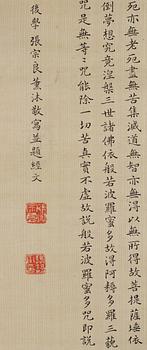 死亦无老死盡无苦集滅道无智亦无得以无所得故菩提薩埵依
倒夢想究竟涅槃三世諸佛依般若波羅蜜多故得阿耨多羅三藐
咒是无等等咒能除一切苦真實不虛故說般若波羅蜜多咒即說
後學張宗良薰沐敬寫並題經文